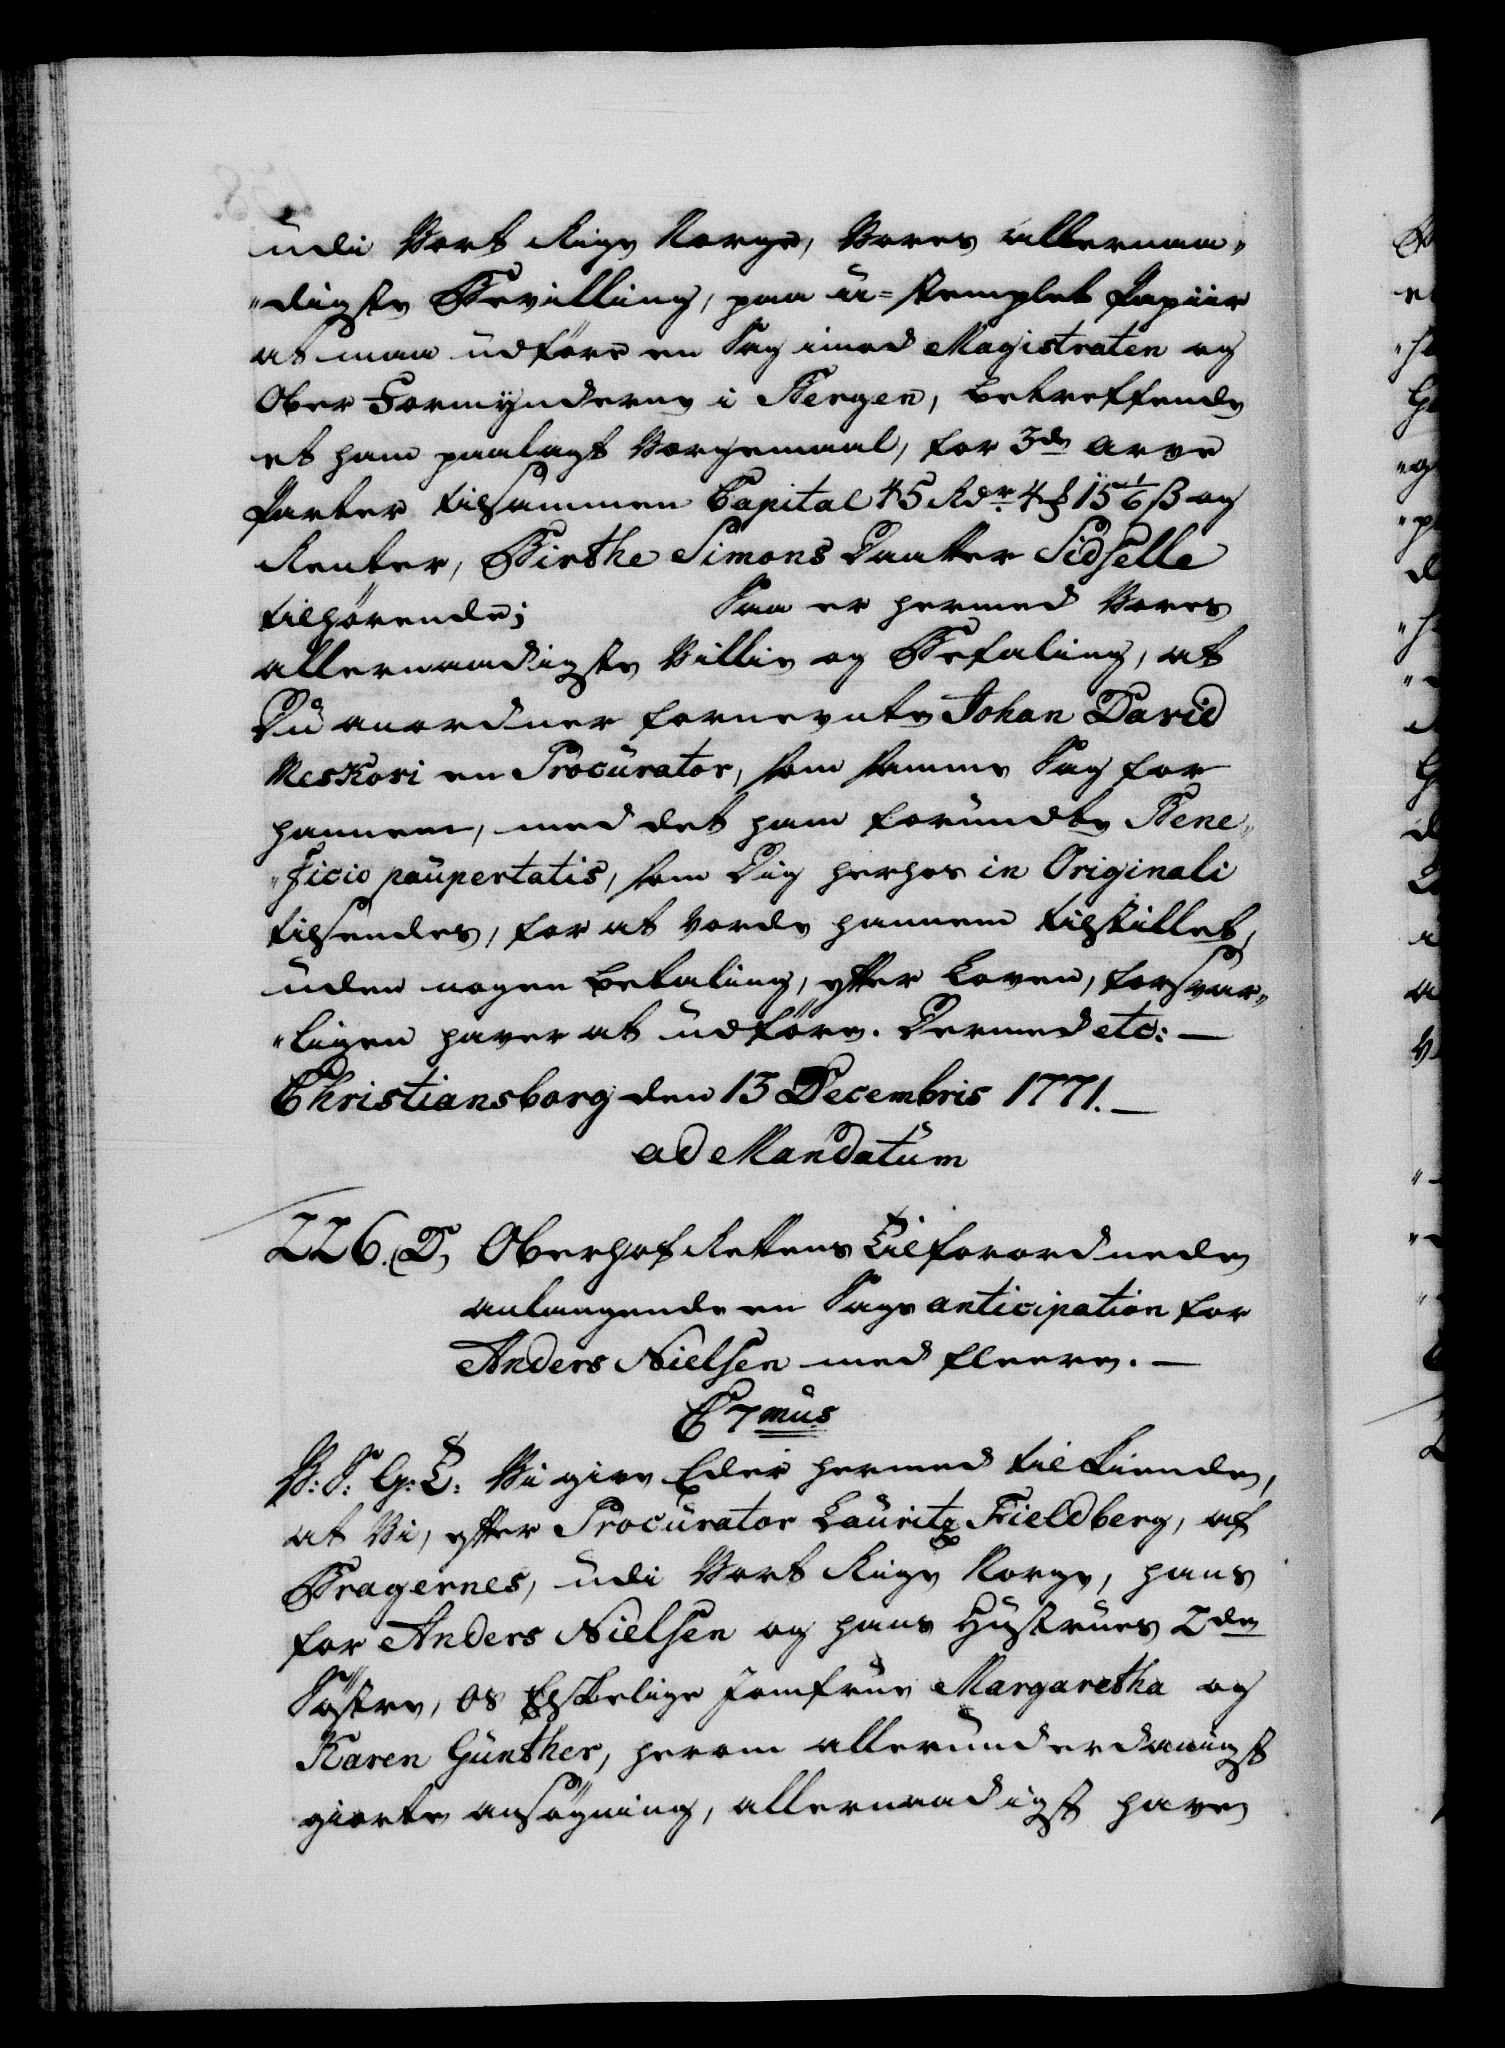 udi Vort Rige Norge, Vores allernaa„
„digste Bevilling, paa u=stemplet Papiir
at maa udføre en Sag imod Magistraten og
Ober Formynderne i Bergen, betreffende
et ham paalagt Værgemaal, for 3de arve
Parter tilsammen Capital 45 Rdr. 4 ₰ 15 1/6 ß og
Renter, Birthe Simons Daatter Sidselle
tilhørende; Saa er hermed Vores
allernaadigste Villie og Befaling, at
Du anordner fornevnte Johan David
Meskori en Procurator, som samme Sag for
hannem, med det ham forundte Bene„
„ficio paupertatis, som Dig herhos in Originali
tilsendes, for at vorde hannem tilstillet,
uden nogen betaling, efter Loven, forsvar„
„ligen haver at udføre. Dermed etc: —
Christiansborg den 13 Decembris 1771. —
ad Mandatum
226. D, Oberhof Rettens Tilforordnede
anlangende en Sags anticipation for
Anders Nielsen med fleere. —
C7mus
V: S: G: T: Vi give Eder hermed tilkiende,
at Vi, efter Procurator Lauritz Fieldberg, af
Bragernes, udi Vort Rige Norge, hans
for Anders Nielsen og hans Hustrues 2de
Søstre, os Elskelige Jomfrue Margaretha og
Karen Günther, herom allerunderdanigst
giorte ansøgning, allernaadigst have